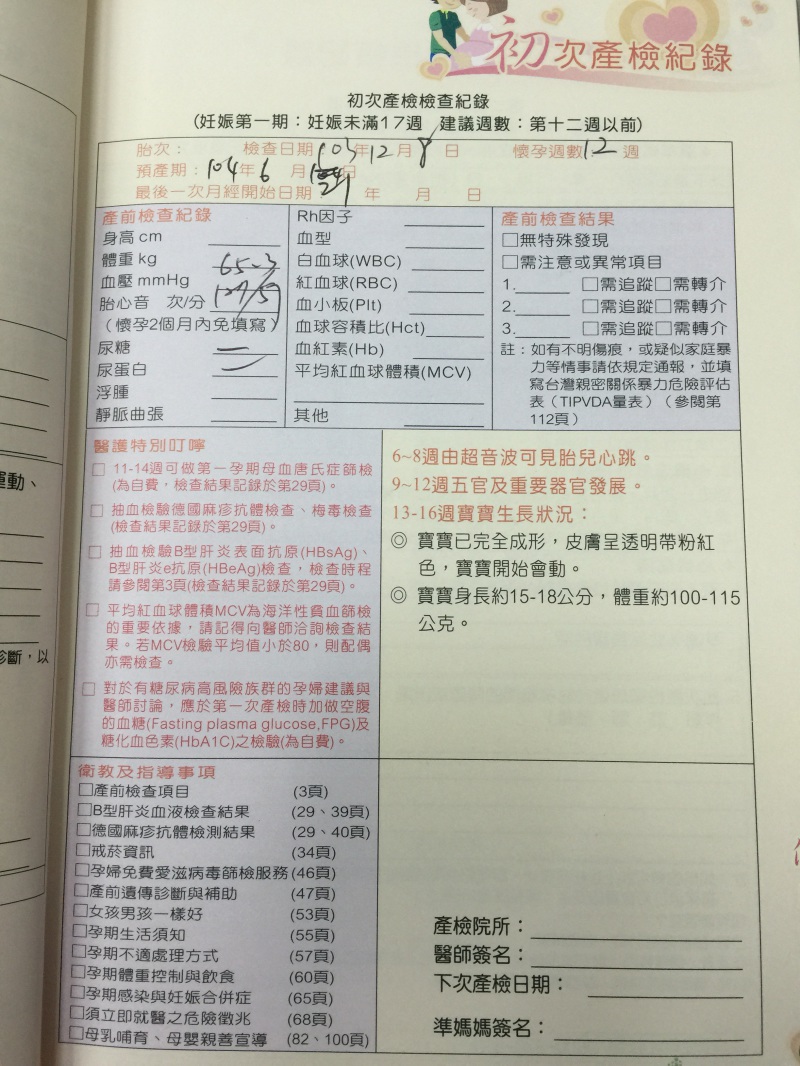 初次產檢紀錄
初次產檢檢查紀錄
(妊娠第一期：妊娠未滿17週 建議週數：第十二週以前)
胎次： 檢查日期 103年12月8日 懷孕週數12週
預產期：104年6月21日
最後一次月經開始日期 年 月 日
產前檢查紀錄
身高 cm
體重 kg 65.3
血壓 mmHg 127/59
胎心音 次/分
（懷孕2個月內免填寫）
尿糖 —
尿蛋白 —
浮腫
靜脈曲張
Rh因子
血型
白血球(WBC)
紅血球(RBC)
血小板(Plt)
血球容積比(Hct)
血紅素(Hb)
平均紅血球體積(MCV)
其他
產前檢查結果
□無特殊發現
□需注意或異常項目
1. □需追蹤□需轉介
2. □需追蹤□需轉介
3. □需追蹤□需轉介
註：如有不明傷痕，或疑似家庭暴
力等情事請依規定通報，並填
寫台灣親密關係暴力危險評估
表（TIPVDA量表）（參閱第
112頁）
醫護特別叮嚀
□ 11-14週可做第一孕期母血唐氏症篩檢
(為自費，檢查結果記錄於第29頁)。
□ 抽血檢驗德國麻疹抗體檢查、梅毒檢查
(檢查結果記錄於第29頁)。
□ 抽血檢驗B型肝炎表面抗原(HBsAg)、
B型肝炎e抗原(HBeAg)檢查，檢查時程
請參閱第3頁(檢查結果記錄於第29頁)。
□ 平均紅血球體積MCV為海洋性貧血篩檢
的重要依據，請記得向醫師洽詢檢查結
果。若MCV檢驗平均值小於80，則配偶
亦需檢查。
□ 對於有糖尿病高風險族群的孕婦建議與
醫師討論，應於第一次產檢時加做空腹
的血糖(Fasting plasma glucose,FPG)及
糖化血色素(HbA1C)之檢驗(為自費)。
6~8週由超音波可見胎兒心跳。
9~12週五官及重要器官發展。
13-16週寶寶生長狀況：
◎ 寶寶已完全成形，皮膚呈透明帶粉紅
色，寶寶開始會動。
◎ 寶寶身長約15-18公分，體重約100-115
公克。
衛教及指導事項
□產前檢查項目 (3頁)
□B型肝炎血液檢查結果 (29、39頁)
□德國麻疹抗體檢測結果 (29、40頁)
□戒菸資訊 (34頁)
□孕婦免費愛滋病毒篩檢服務(46頁)
□產前遺傳診斷與補助 (47頁)
□女孩男孩一樣好 (53頁)
□孕期生活須知 (55頁)
□孕期不適處理方式 (57頁)
□孕期體重控制與飲食 (60頁)
□孕期感染與妊娠合併症 (65頁)
□須立即就醫之危險徵兆 (68頁)
□母乳哺育、母嬰親善宣導 (82、100頁)
產檢院所：
醫師簽名：
下次產檢日期：
準媽媽簽名：
運動、
診斷，以